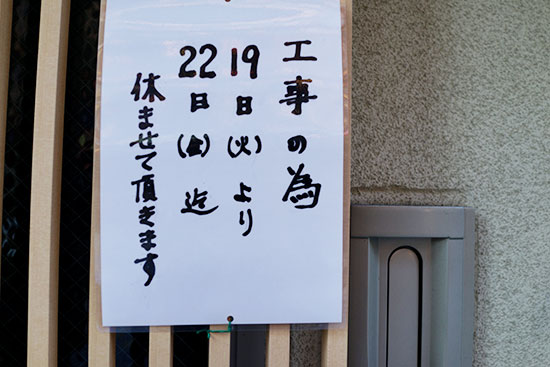 工事の為
19日(火)より
22日(金)迄
休ませて頂きます